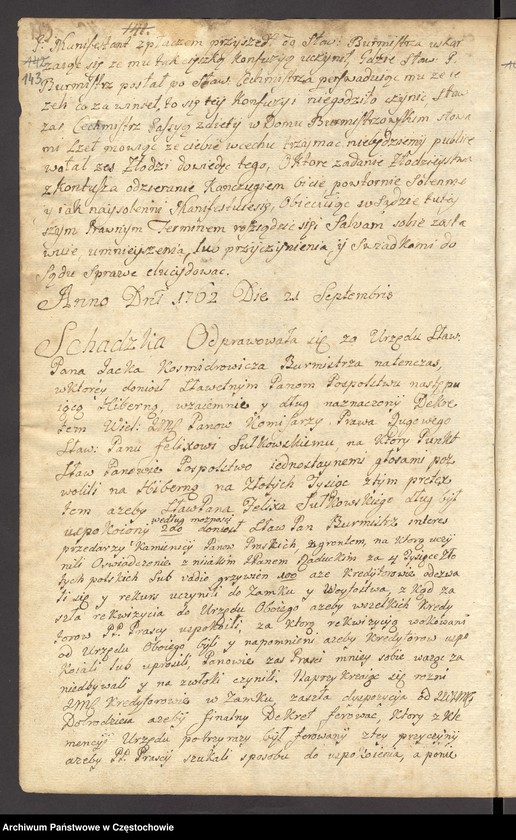 144.
142
143
P. Manifestant z płaczem przyszedł do Sław: Burmistrza uskar
zaiąc się ze mu tak ciężką Konfuzyą uczynił, Gdzie Sław: P.
Burmistrz posłał po Sław. Cechmistrza perswaduiąc mu ze ie
zeli co zawinieł, to się tey Konfuzyi niegodziło czynić, Sław
zas Cechmistrz Passyą zdięty w Domu Burmistrzowskim słowa
mi Lżeł mowiąc ze ciebie w cechu trzajmac niebędziemy publiko
wałał zes Złodzi dowiedę tego, O które zadanie Złodzieystwa
z Kontusza odzieranie Kanczugiem bicie powtornie Solenne
y iak naysolennii Manifestuiesię, Obiecuiąc w Sądzie tutey
szym Prawnym Terminem rozsądzić się Salvam sobie zosta
wuie, umnieyszenia, luo przyczynienia, y Swiadkami do
Sądu Sprawę elucidowac.
Anno Dni 1762 Die 21 Septembris
Schadzka Odprawowała się za Urzędu Sław:
Pana Jacka Kosmidrowicza Burmistrza natenczas,
w ktorey doniosł Sławetnym Panom Pospolstwu nastepu
iącą Hiberną, wzaiemnie y dług naznaczony Dekre
tem Wiel: JMP Panow Komisarzy Prawa Dugowego
Sław: Panu Felixowi Sułkowskiemu na który Punkt
Sław Panowie Pospolstwo iednostaynemi głosami poz
wolili na Hiberną na Złotych Tysiąc z tym pretex
tem azeby Sław Pana Felixa Sułkowskiego dług był
według moznosci
uspokoiony 2do doniosł Sław Pan Burmistrz interes
przedarzy Kamienicy Panow Pruskich z gruntem, na ktorey uczy
nili Oswiadczenie z niakim Panem Daduckim za 4 Tysiące Zło
tych polskich Lub vadio grzywien 100 aze Kredytorowie odezwa
li się y rekurs uczynili do Zamku y Woytostwa, z kąd za
szła rekwizycia do Urzędu Oboiego azeby wszelkich Kredy
torow PP. Prascy uspokoili, za ktorą rekwizycyą wokowani
od Urzędu Oboiego byli y napomnieni azeby Kredytorow uspo
koiali lub uprosili, Panowie zas Prasci mniey sobie waząc za
niedbywali y na zwłoki czynili. Naprzykrzaiąc się rozni
JMP Kredytorowie w Zamku zaszła dyspozycja od JWXMP
Dobrodzieia azeby finalny Dekret ferowac, Ktory z kle
mencyi Urzędu potrzyrazy był ferowany z tey przyczyny
azeby PP. Prascy szukali sposobu do uspokoienia, a ponie
Archiwum Państwowe w Częstochowie